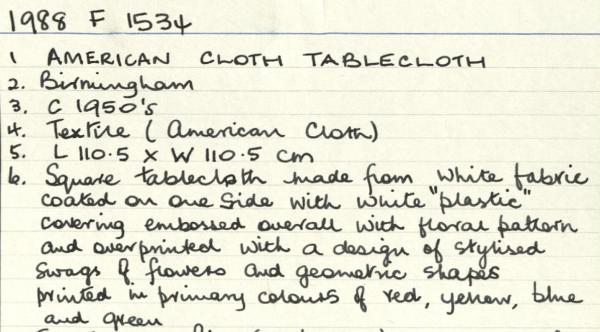 1988 F 1534
1 AMERICAN CLOTH TABLECLOTH
2. Birmingham
3. C 1950's
4. Textile (American Cloth)
5. L 110.5 x W 110.5 cm
6. Square tablecloth made from white fabric
coated on one side with white "plastic"
covering embossed overall with floral pattern
and overprinted with a design of stylised
swags of flowers and geometric shapes
printed in primary colours of red, yellow, blue
and green